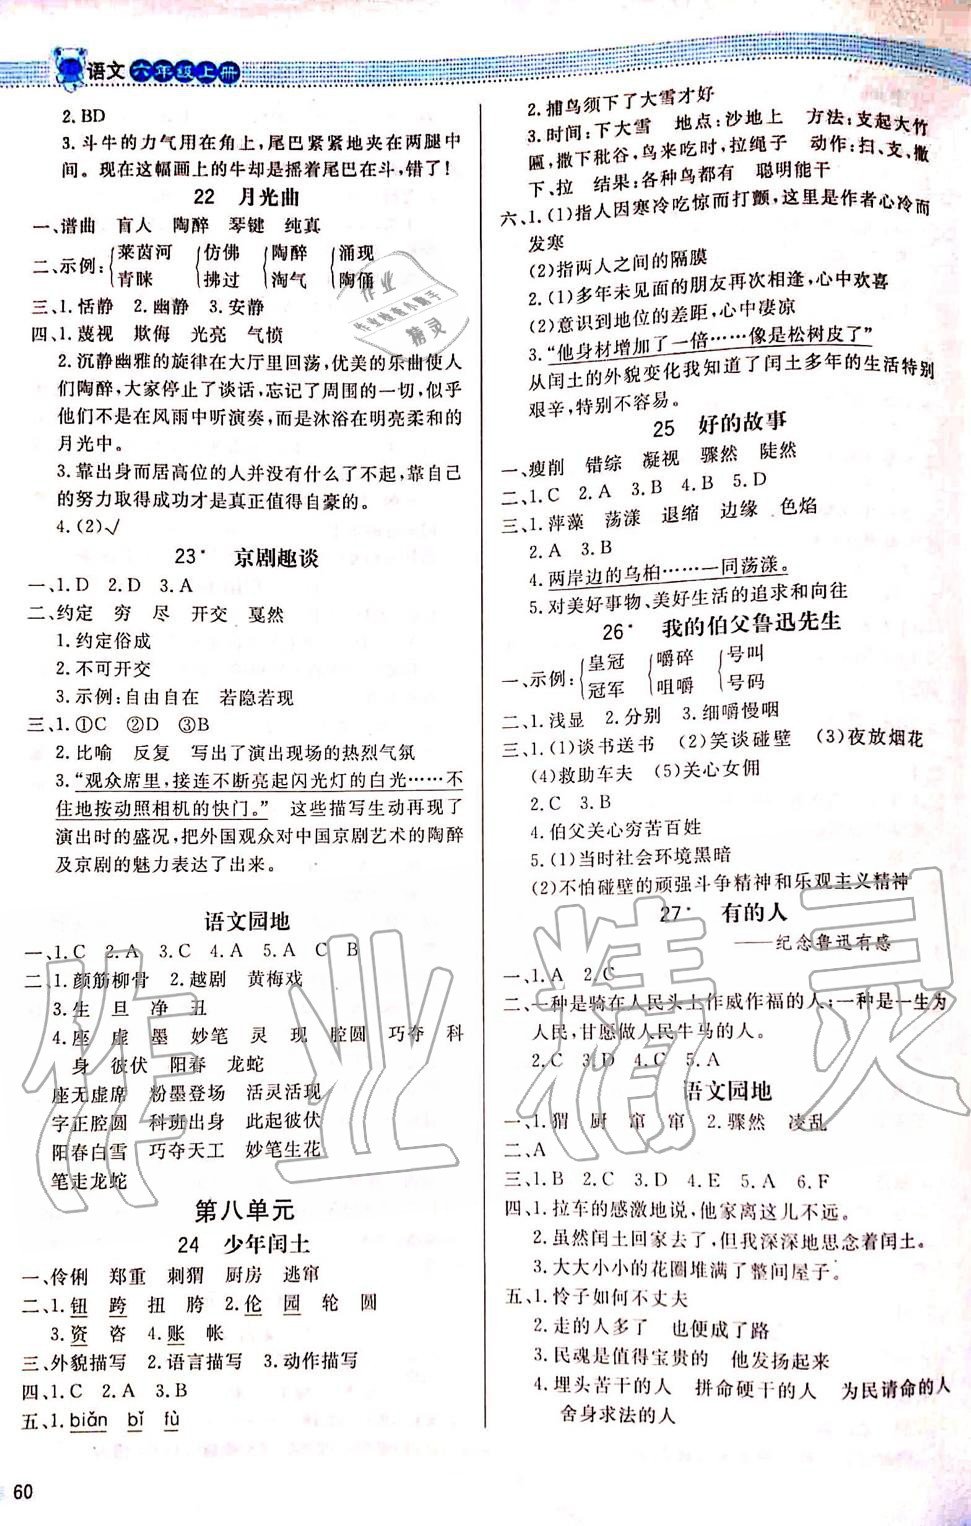 语文 六年级上册
2. BD
3. 斗牛的力气用在角上，尾巴紧紧地夹在两腿中
间。现在这幅画上的牛却是摇着尾巴在斗，错了！
22 月光曲
一、谱曲 盲人 陶醉 琴键 纯真
二、示例：莱茵河 仿佛 陶醉 涌现
青睐 拂过 淘气 陶俑
三、1. 恬静 2. 幽静 3. 安静
四、1. 蔑视 欺侮 光亮 气愤
2. 沉静幽雅的旋律在大厅里回荡，优美的乐曲使人
们陶醉，大家停止了谈话，忘记了周围的一切，似乎
他们不是在风雨中听演奏，而是沐浴在明亮柔和的
月光中。
3. 靠出身而居高位的人并没有什么了不起，靠自己
的努力取得成功才是真正值得自豪的。
4. (2)√
23* 京剧趣谈
一、1. D 2. D 3. A
二、约定 穷 尽 开交 戛然
1. 约定俗成
2. 不可开交
3. 示例：自由自在 若隐若现
三、1. ①C ②D ③B
2. 比喻 反复 写出了演出现场的热烈气氛
3. “观众席里，接连不断亮起闪光灯的白光……不
住地按动照相机的快门。” 这些描写生动再现了
演出时的盛况，把外国观众对中国京剧艺术的陶醉
及京剧的魅力表达了出来。
语文园地
一、1. C 2. A 3. C 4. A 5. A C B
二、1. 颜筋柳骨 2. 越剧 黄梅戏
3. 生 旦 净 丑
4. 座 虚 墨 妙笔 灵 现 腔圆 巧夺 科
身 彼伏 阳春 龙蛇
座无虚席 粉墨登场 活灵活现
字正腔圆 科班出身 此起彼伏
阳春白雪 巧夺天工 妙笔生花
笔走龙蛇
第八单元
24 少年闰土
一、伶俐 郑重 刺猬 厨房 逃窜
二、1. 钮 跨 扭 胯 2. 伦 园 轮 圆
3. 资 咨 4. 账 帐
三、外貌描写 2. 语言描写 3. 动作描写
四、1. C 2. A 3. B
五、1. biǎn bǐ fù
2. 捕鸟须下了大雪才好
3. 时间：下大雪 地点：沙地上 方法：支起大竹
匾，撒下秕谷，鸟来吃时，拉绳子 动作：扫、支、撒
下、拉 结果：各种鸟都有 聪明能干
六、1. (1)指人因寒冷吃惊而打颤，这里是作者心冷而
发寒
(2)指两人之间的隔膜
2. (1)多年未见面的朋友再次相逢，心中欢喜
(2)意识到地位的差距，心中凄凉
3. “他身材增加了一倍……像是松树皮了”
从闰土的外貌变化我知道了闰土多年的生活特别
艰辛，特别不容易。
25 好的故事
一、瘦削 错综 凝视 骤然 陡然
二、1. C 2. A 3. B 4. B 5. D
三、1. 萍藻 荡漾 退缩 边缘 色焰
2. A 3. B
4. 两岸边的乌桕……一同荡漾。
5. 对美好事物、美好生活的追求和向往
26* 我的伯父鲁迅先生
一、示例：皇冠 嚼碎 号叫
冠军 咀嚼 号码
二、1. 浅显 2. 分别 3. 细嚼慢咽
三、1. (1)谈书送书 (2)笑谈碰壁 (3)夜放烟花
(4)救助车夫 (5)关心女佣
2. C 3. B
4. 伯父关心穷苦百姓
5. (1)当时社会环境黑暗
(2)不怕碰壁的顽强斗争精神和乐观主义精神
27* 有的人
——纪念鲁迅有感
一、1. A 2. C
二、一种是骑在人民头上作威作福的人；一种是一生为
人民，甘愿做人民牛马的人。
2. C 3. D 4. C 5. A
语文园地
一、1. 猬 厨 窜 窜 2. 骤然 凌乱
二、A
三、1. B 2. C 3. D 4. E 5. A 6. F
四、1. 拉车的感激地说，他家离这儿不远。
2. 虽然闰土回家去了，但我深深地思念着闰土。
3. 大大小小的花圈堆满了整间屋子。
五、1. 怜子如何不丈夫
2. 走的人多了 也便成了路
3. 民魂是值得宝贵的 他发扬起来
4. 埋头苦干的人 拼命硬干的人 为民请命的人
舍身求法的人
60
作业精灵